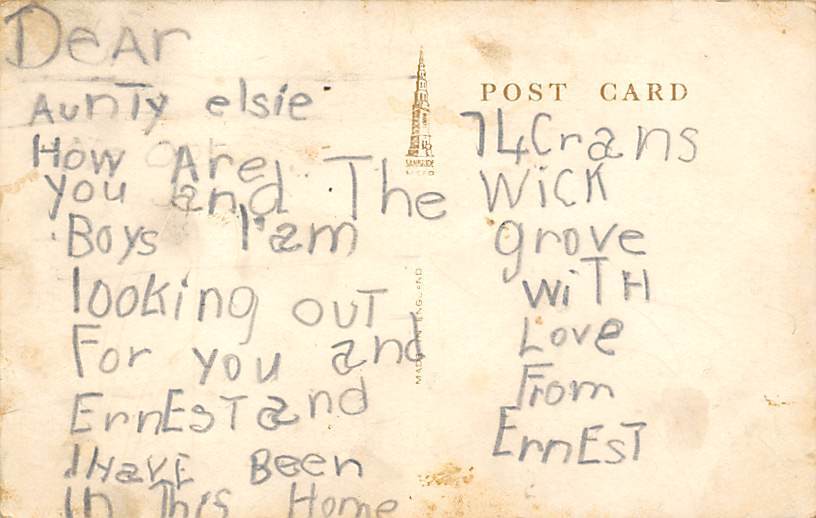 Dear
Aunty elsie
How Are
you and The
Boys I'am
looking out
For you and
ErnEsT and
I HavE Been
In This Home
POST CARD
74 Crans
WiCK
grove
wiTH
Love
From
ErnEsT
MADE IN ENGLAND